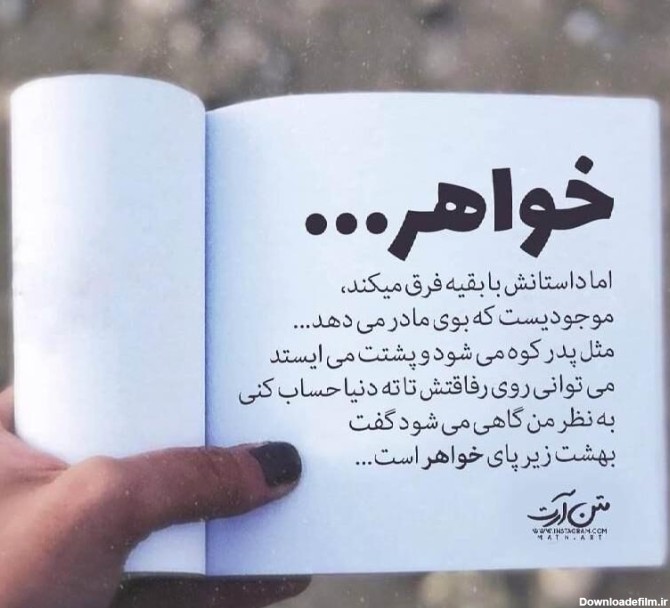 خواهر...
اما داستانش با بقیه فرق میکند،
موجودیست که بوی مادر می دهد...
مثل پدر کوه می شود و پشتت می ایستد
می توانی روی رفاقتش تا ته دنیا حساب کنی
به نظر من گاهی می شود گفت
بهشت زیر پای خواهر است...
متن آرت
WWW.INSTAGRAM.COM
MATN.ART
Downloadefilm.ir